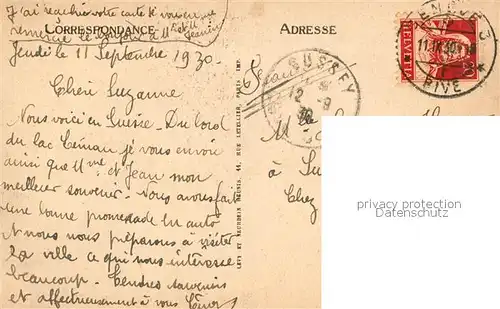 J'ai reçu hier votre carte je vous en
remercie
CORRESPONDANCE
ADRESSE
Jeudi le 11 Septembre 1930.
Chère Suzanne
Nous voici en Suisse. Du bord
du lac Léman je vous envoie
ainsi que Mme et Jean mon
meilleur souvenir. Nous avons fait
une bonne promenade en auto
et nous nous préparons à visiter
la ville ce qui nous intéresse
beaucoup. Tendres
et affectueusement à vous
LEVY ET NEURDEIN RÉUNIS, 44, RUE LETELLIER, PARIS IMP.
GENÈVE 3
11.IX.30
RIVE
HELVETIA
20
SUSSEY
12
9
M
à Su
Chez
privacy protection
Datenschutz